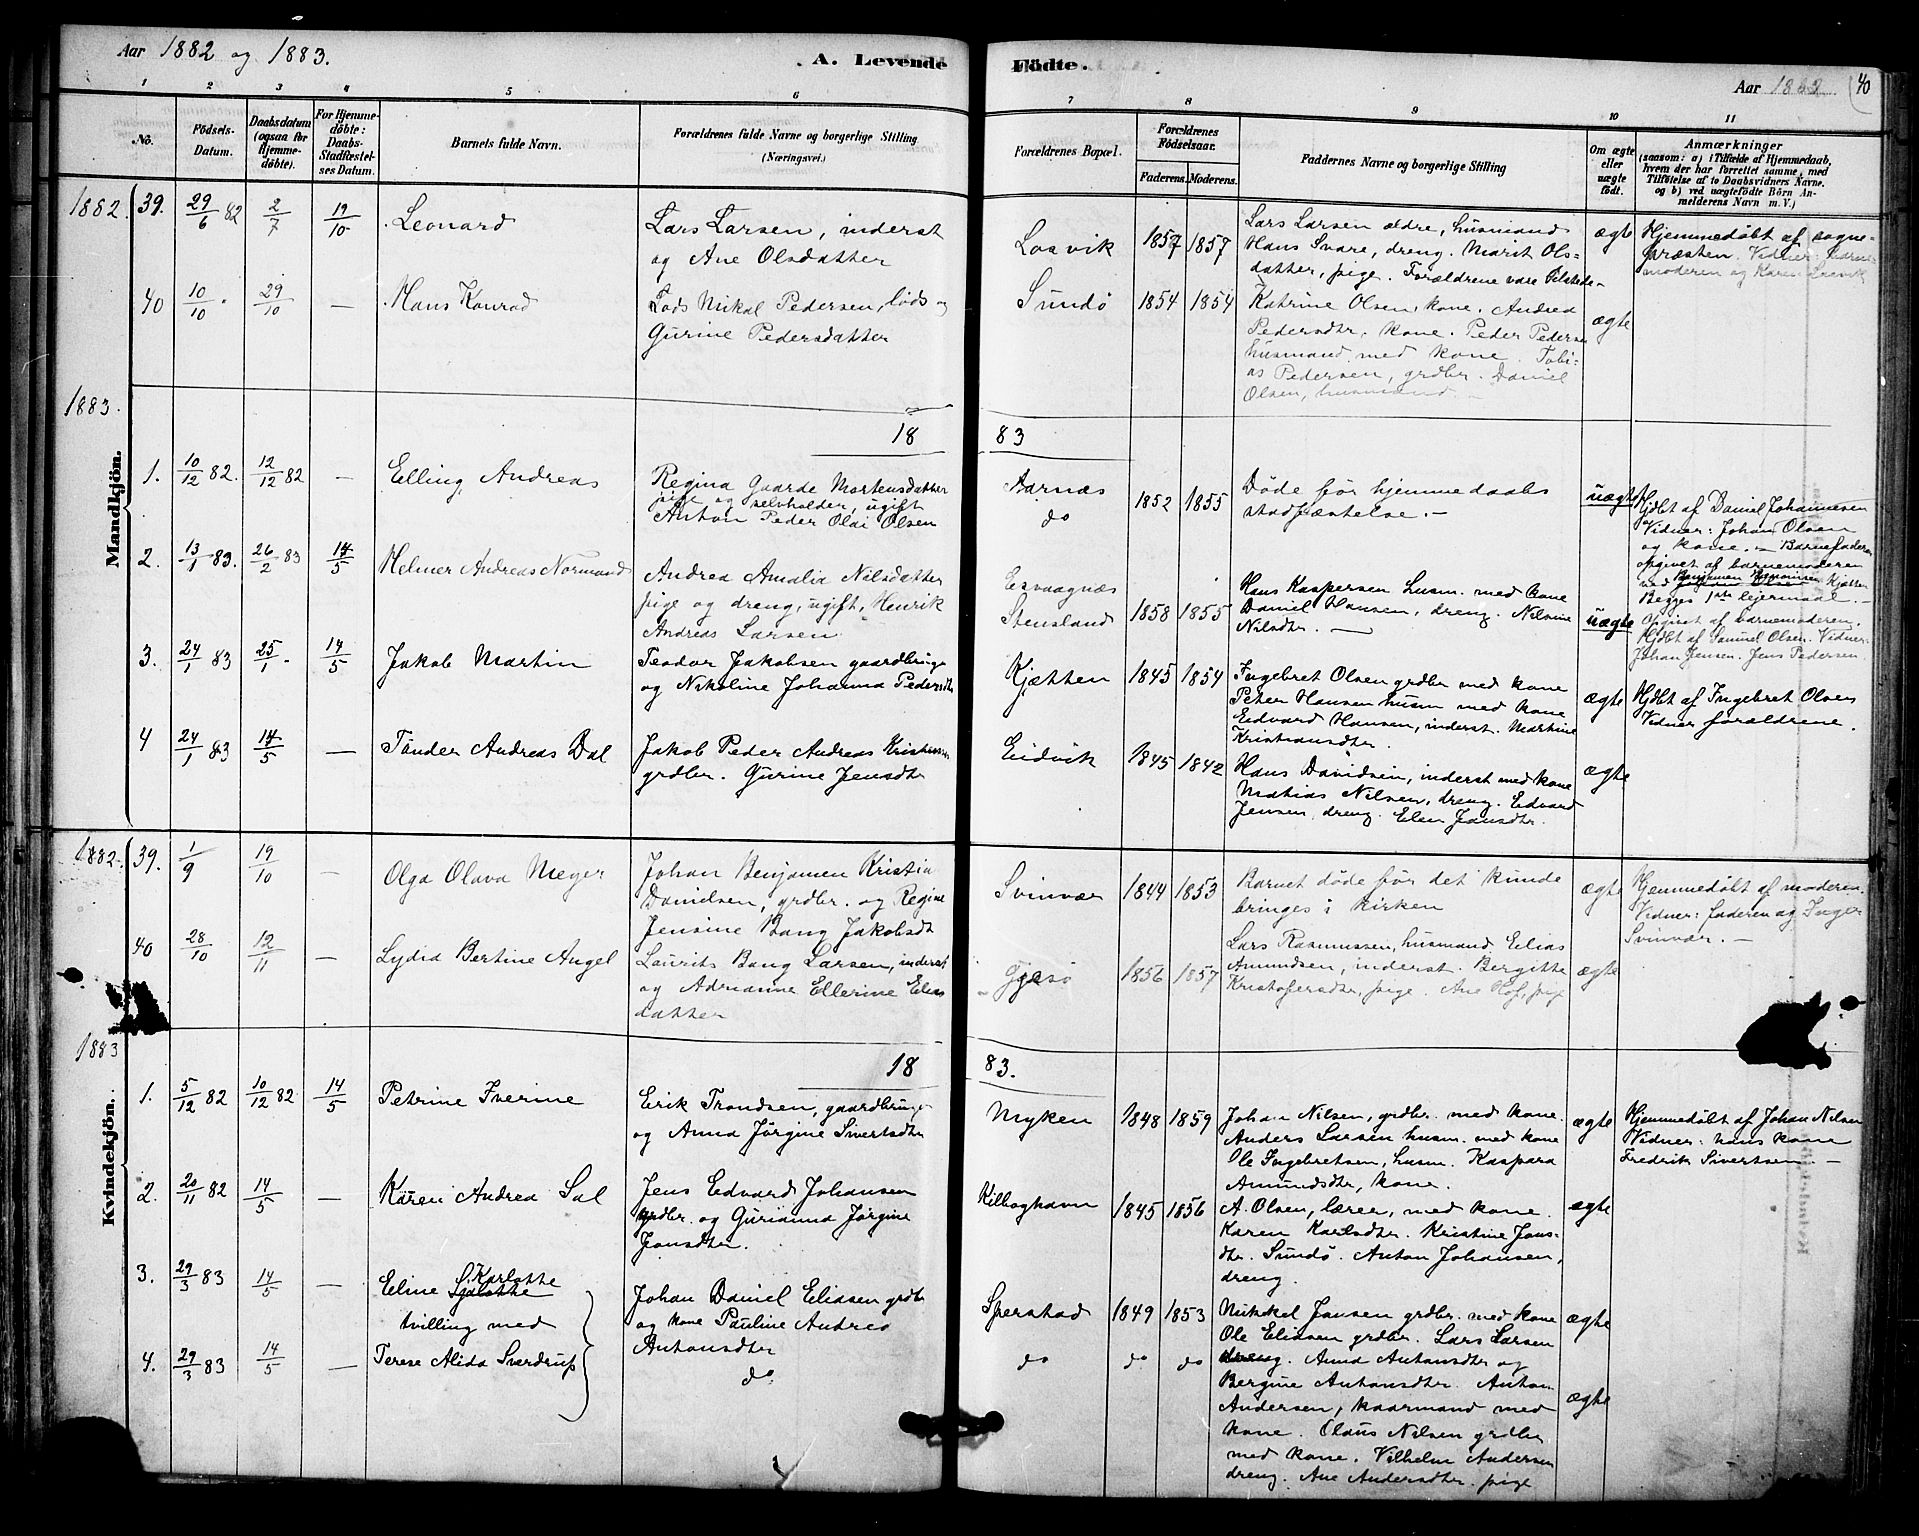 Aar 1882 og 1883.
A. Levende Födte.
Aar 1882
40
1
2
3
4
5
6
7
8
9
10
11
No.
Födsels-
Datum.
Daabsdatum
(ogsaa for
Hjemme-
döbte).
For Hjemme-
döbte:
Daabs-
Stadfæstel-
ses Datum.
Barnets fulde Navn.
Forældrenes fulde Navne og borgerlige Stilling
(Næringsvei.)
Forældrenes Bopæl.
Forældrenes
Födselsaar.
Faderens.
Moderens.
Faddernes Navne og borgerlige Stilling
Om ægte
eller
uægte
födt.
Anmærkninger
(saasom: a) i Tilfælde af Hjemmedaab,
hvem der har forrettet samme, med
Tilföielse af to Daabsvidners Navne,
og b) ved uægtefödte Börn An-
melderens Navn m. V.)
Mandkjön.
1882
39. 29/6 82 2/7 19/10 Leonard
Lars Larsen, inderst
og Ane Olsdatter
Losvik 1857 1857
Lars Larsen ældre, husmand
Hans Svare, dreng. Marit Ols-
datter, pige. Forældrene vare tilstede-
ægte
Hjemmedøbt af sogne-
præsten. Vidner:
moderen og Karen Losvik
40 10/10 29/10 — Hans Konrad
Lods Mikal Pedersen, lods og
Gurine Pedersdatter
Sundø 1854 1854
Katrine Olsen, kone. Andrea
Pedersdtr, kone. Peder Pedersen
husmand med kone. Tobi-
as Pedersen, grdbr. Daniel
Olsen, husmand. —
ægte
1883.
18 83
1. 10/12 82. 12/12 82 — Elling Andreas
Regina Gaarde Mortensdatter
pige og selvholder, ugift
Anton Peder Olai Olsen
Aarnæs
do
1852 1855
Døde før hjemmedaabs
stadfæstelse. —
uægte
Hjdbt af Daniel Johannesen
Vidner: Johan Olsen
og kone. — Barnefaderen
opgivet af barnemoderen
ved Benjamen Kjætten
Begges 1ste leiermaal —
2. 13/1 83. 26/2 83 14/5 Helmer Andreas Normand
Andrea Amalia Nilsdatter
pige og dreng, ugift, Henrik
Andreas Larsen
Esvaagnæs
Stensland 1858 1855
Hans Kaspersen husm. med kone
Daniel Hansen, dreng. Nilsine
Nilsdtr. —
uægte
Opgivet af barnemoderen.
Hjdbt af Samuel Olsen. Vidner:
Johan Jensen. Jens Pedersen
3. 24/1 83 25/1 . 14/5 Jakob Martin
Teodor Jakobsen gaardbruger
og Nikoline Johanna Pedersdtr
Kjætten 1845 1854
Ingebret Olsen grdbr med kone
Peter Hansen husm med kone
Edvard Hansen, inderst. Martine
Kristiansdtr.
ægte
Hjdbt af Ingebret Olsen
Vidner forældrene.
4 24/1 83 14/5 — Tønder Andreas Dal
Jakob Peder Andreas Kristensen
grdbr. Gurine Jensdtr
Eidvik 1845 1842
Hans Davidsen, inderst med kone
Matias Nilsen, dreng. Edvard
Jensen, dreng. Elen Jansdtr.
ægte
Kvindekjön.
1882
39. 1/9 19/10 — Olga Olava Meyer
Johan Benjamen Kristia
Danielsen, grdbr. og Regine
Jensine Bang Jakobsdt
Svinvær 1844 1853
Barnet døde før det kunde
bringes i kirken
ægte
Hjemmedøbt af moderen.
Vidner: faderen og Inger
Svinvær. —
40 28/10 12/11 — Lydia Bertine Angel
Laurits Bang Larsen, inderst
og Adrianne Ellerine Elias
datter
Gjesø 1856 1857
Lars Rasmussen, husmand Elias
Amundsen, inderst. Bergitte
Kristofersdtr, pige. Ane Hof, pige
ægte
1883
18 83.
1. 5/12 82 10/12 82 14/5 Petrine Iverine
Erik Trondsen, gaardbruger
og Anna Jørgine Sivertsdtr
Myken 1848 1859
Johan Nilsen, grdbr. med kone.
Anders Larsen husm. med kone
Ole Ingebretsen, husm. Kaspara
Amundsdtr, kone.
ægte
Hjemmedøbt af Johan Nilsen
Vidner: hans kone
Fredrik Sivertsen. —
2. 20/11 82 14/5 — Karen Andrea Sal
Jens Edvard Johansen
grdbr. og Gurianna Jørgine
Jensdtr.
Kilboghavn 1845 1856
A. Olsen, lærer, med kone.
Karen Karlsdtr. Kristine Jans-
dtr. Sundø. Anton Johansen,
dreng.
ægte
3. 29/3 83 14/5 — Eline Karlotte
tvilling med
Johan Daniel Eliasen grdbr
og kone Pauline Andrea
Antonsdtr
Sperstad 1849 1853
Mikkel Jansen grdbr. med kone
Ole Eliasen grdbr. Lars Larsen
dreng. Anna Antonsdtr og
Bergine Antonsdtr. Anton
Andersen, kaarmand med
kone. Olaus Nilsen grdbr
med kone. Vilhelm Andersen
dreng. Ane Andersdtr. pige
ægte
4. 29/3 83 14/5 — Terese Alida Sverdrup
do
do do do
ægte